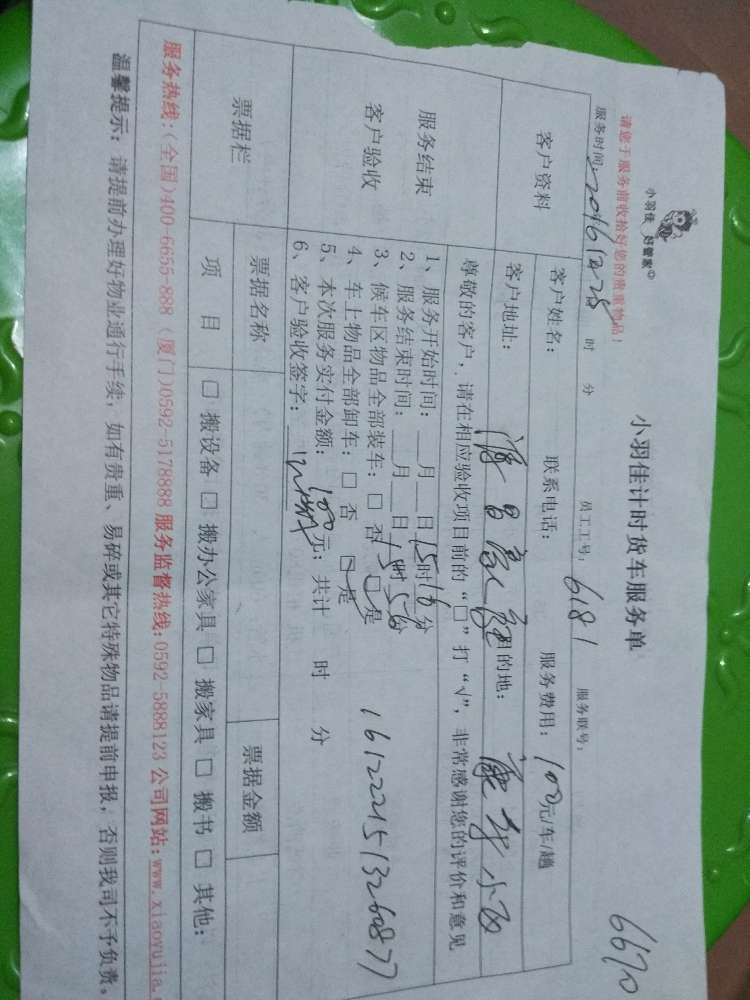 请您于服务前收拾好您的贵重物品!
小羽佳 好管家
小羽佳计时货车服务单
6670
服务时间: 20161228 时 分 员工工号: 6181 服务联号:
客户资料
客户姓名: 联系电话: 服务费用: 100元/车/趟
客户地址: 目的地:
尊敬的客户,请在相应验收项目前的“□”打“√”,非常感谢您的评价和意见
服务结束
客户验收
1、服务开始时间: 月 日 15时16分
2、服务结束时间: 月 日 15时56分
3、候车区物品全部装车: □ 否 □ 是
4、车上物品全部卸车: □ 否 □ 是
5、本次服务实付金额: 100元; 共计 时 分
6、客户验收签字:
票据栏
票据名称 票据金额
项 目 □ 搬设备 □ 搬办公家具 □ 搬家具 □ 搬书 □ 其他:
服务热线:(全国)400-6655-888 (厦门)0592-5178888 服务监督热线:0592-5888123 公司网站:www.xiaoyujia.
温馨提示: 请提前办理好物业通行手续, 如有贵重、易碎或其它特殊物品请提前申报, 否则我司不予负责。